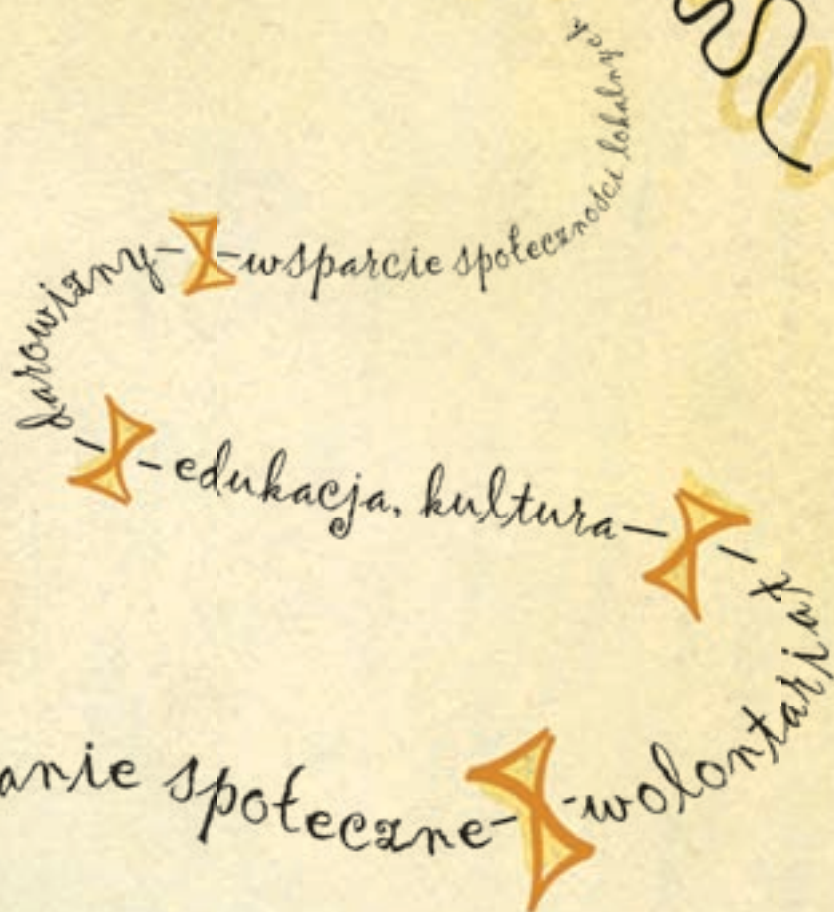 wsparcie społeczności lokalnych
darowizny
edukacja, kultura
wolontariat
anie społeczne